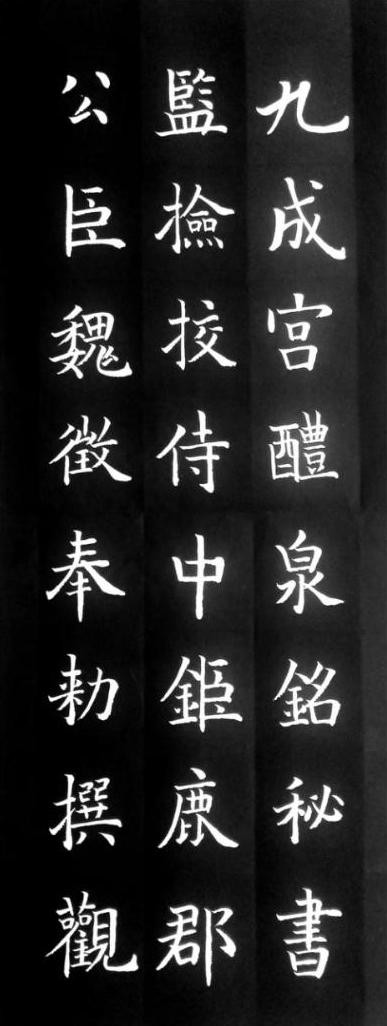 九成宮醴泉銘秘書
監撿挍侍中鉅鹿郡
公臣魏徵奉勅撰觀